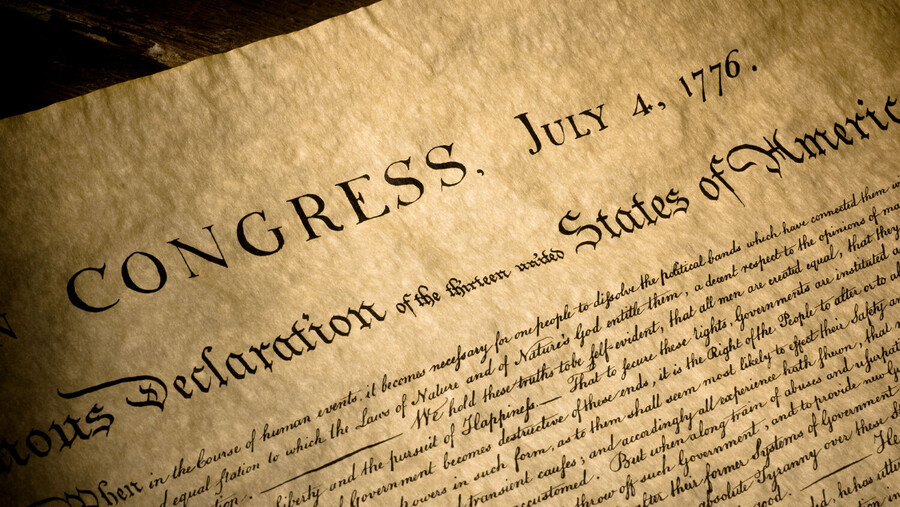 N CONGRESS, JULY 4, 1776.
mous Declaration of the thirteen united States of Americ
When in the Course of human events, it becomes necessary for one people to dissolve the political bands which have connected them
equal station to which the Laws of Nature and of Nature's God entitle them, a decent respect to the opinions of ma
We hold these truths to be self-evident, that all men are created equal, that they
liberty and the pursuit of Happiness — That to secure these rights, Governments are instituted a
Government becomes destructive of these ends, it is the Right of the People to alter or to ab
powers in such form, as to them shall seem most likely to effect their Safety an
transient causes; and accordingly all experience hath shewn, that
accustomed. But when a long train of abuses and usurpati
throw off such Government, and to provide new G
alter their former Systems of Government
absolute Tyranny over these S
good. He
ded, he has utter